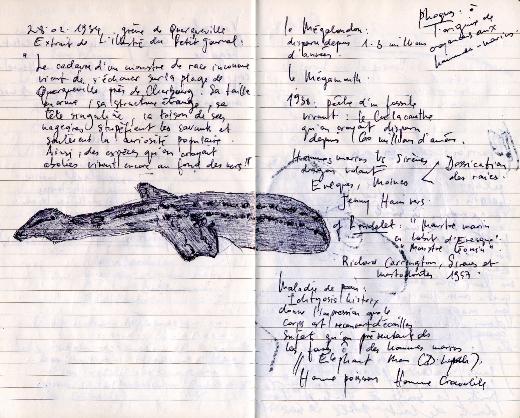 28.02.1934, grève de Querqueville
Extrait de L'illustré du Petit Journal:
"Le cadavre d'un monstre de race inconnue
vient de s'échouer sur la plage de
Querqueville près de Cherbourg. Sa taille
énorme, sa structure étrange, sa
tête singulière, sa toison de ses
nageoires stupéfient les savants et
soulèvent la curiosité populaire.
Ainsi, des espèces qu'on croyait
abolies vivent encore au fond des mers"
le Mégalodon:
disparu depuis 1.5 millions
d'années.
le Mégamouth.
1938. pêche d'un fossile
vivant: le Coelacanthe
qu'on croyait disparu
depuis millions d'années.
Hommes marins Vs Sirènes
dragon volant
Evêques, Moines
Jenny Hanivers.
Dessication
des raies.
Phoques:
organes aux
hommes-marins
cf Rondelet: "Monstre marin
en habit d'Evesque"
"Monstre Léonin"
Richard Carrington, Sirènes et
mastodontes, 1957.
Maladie de peau:
Ichtyosis histrix
donne l'impression que le
corps est recouvert d'écailles
Sujet qu'on présentait ds
les foires: des hommes marins
// Elephant Man (D. Lynch).
Homme poisson Homme Crocodile